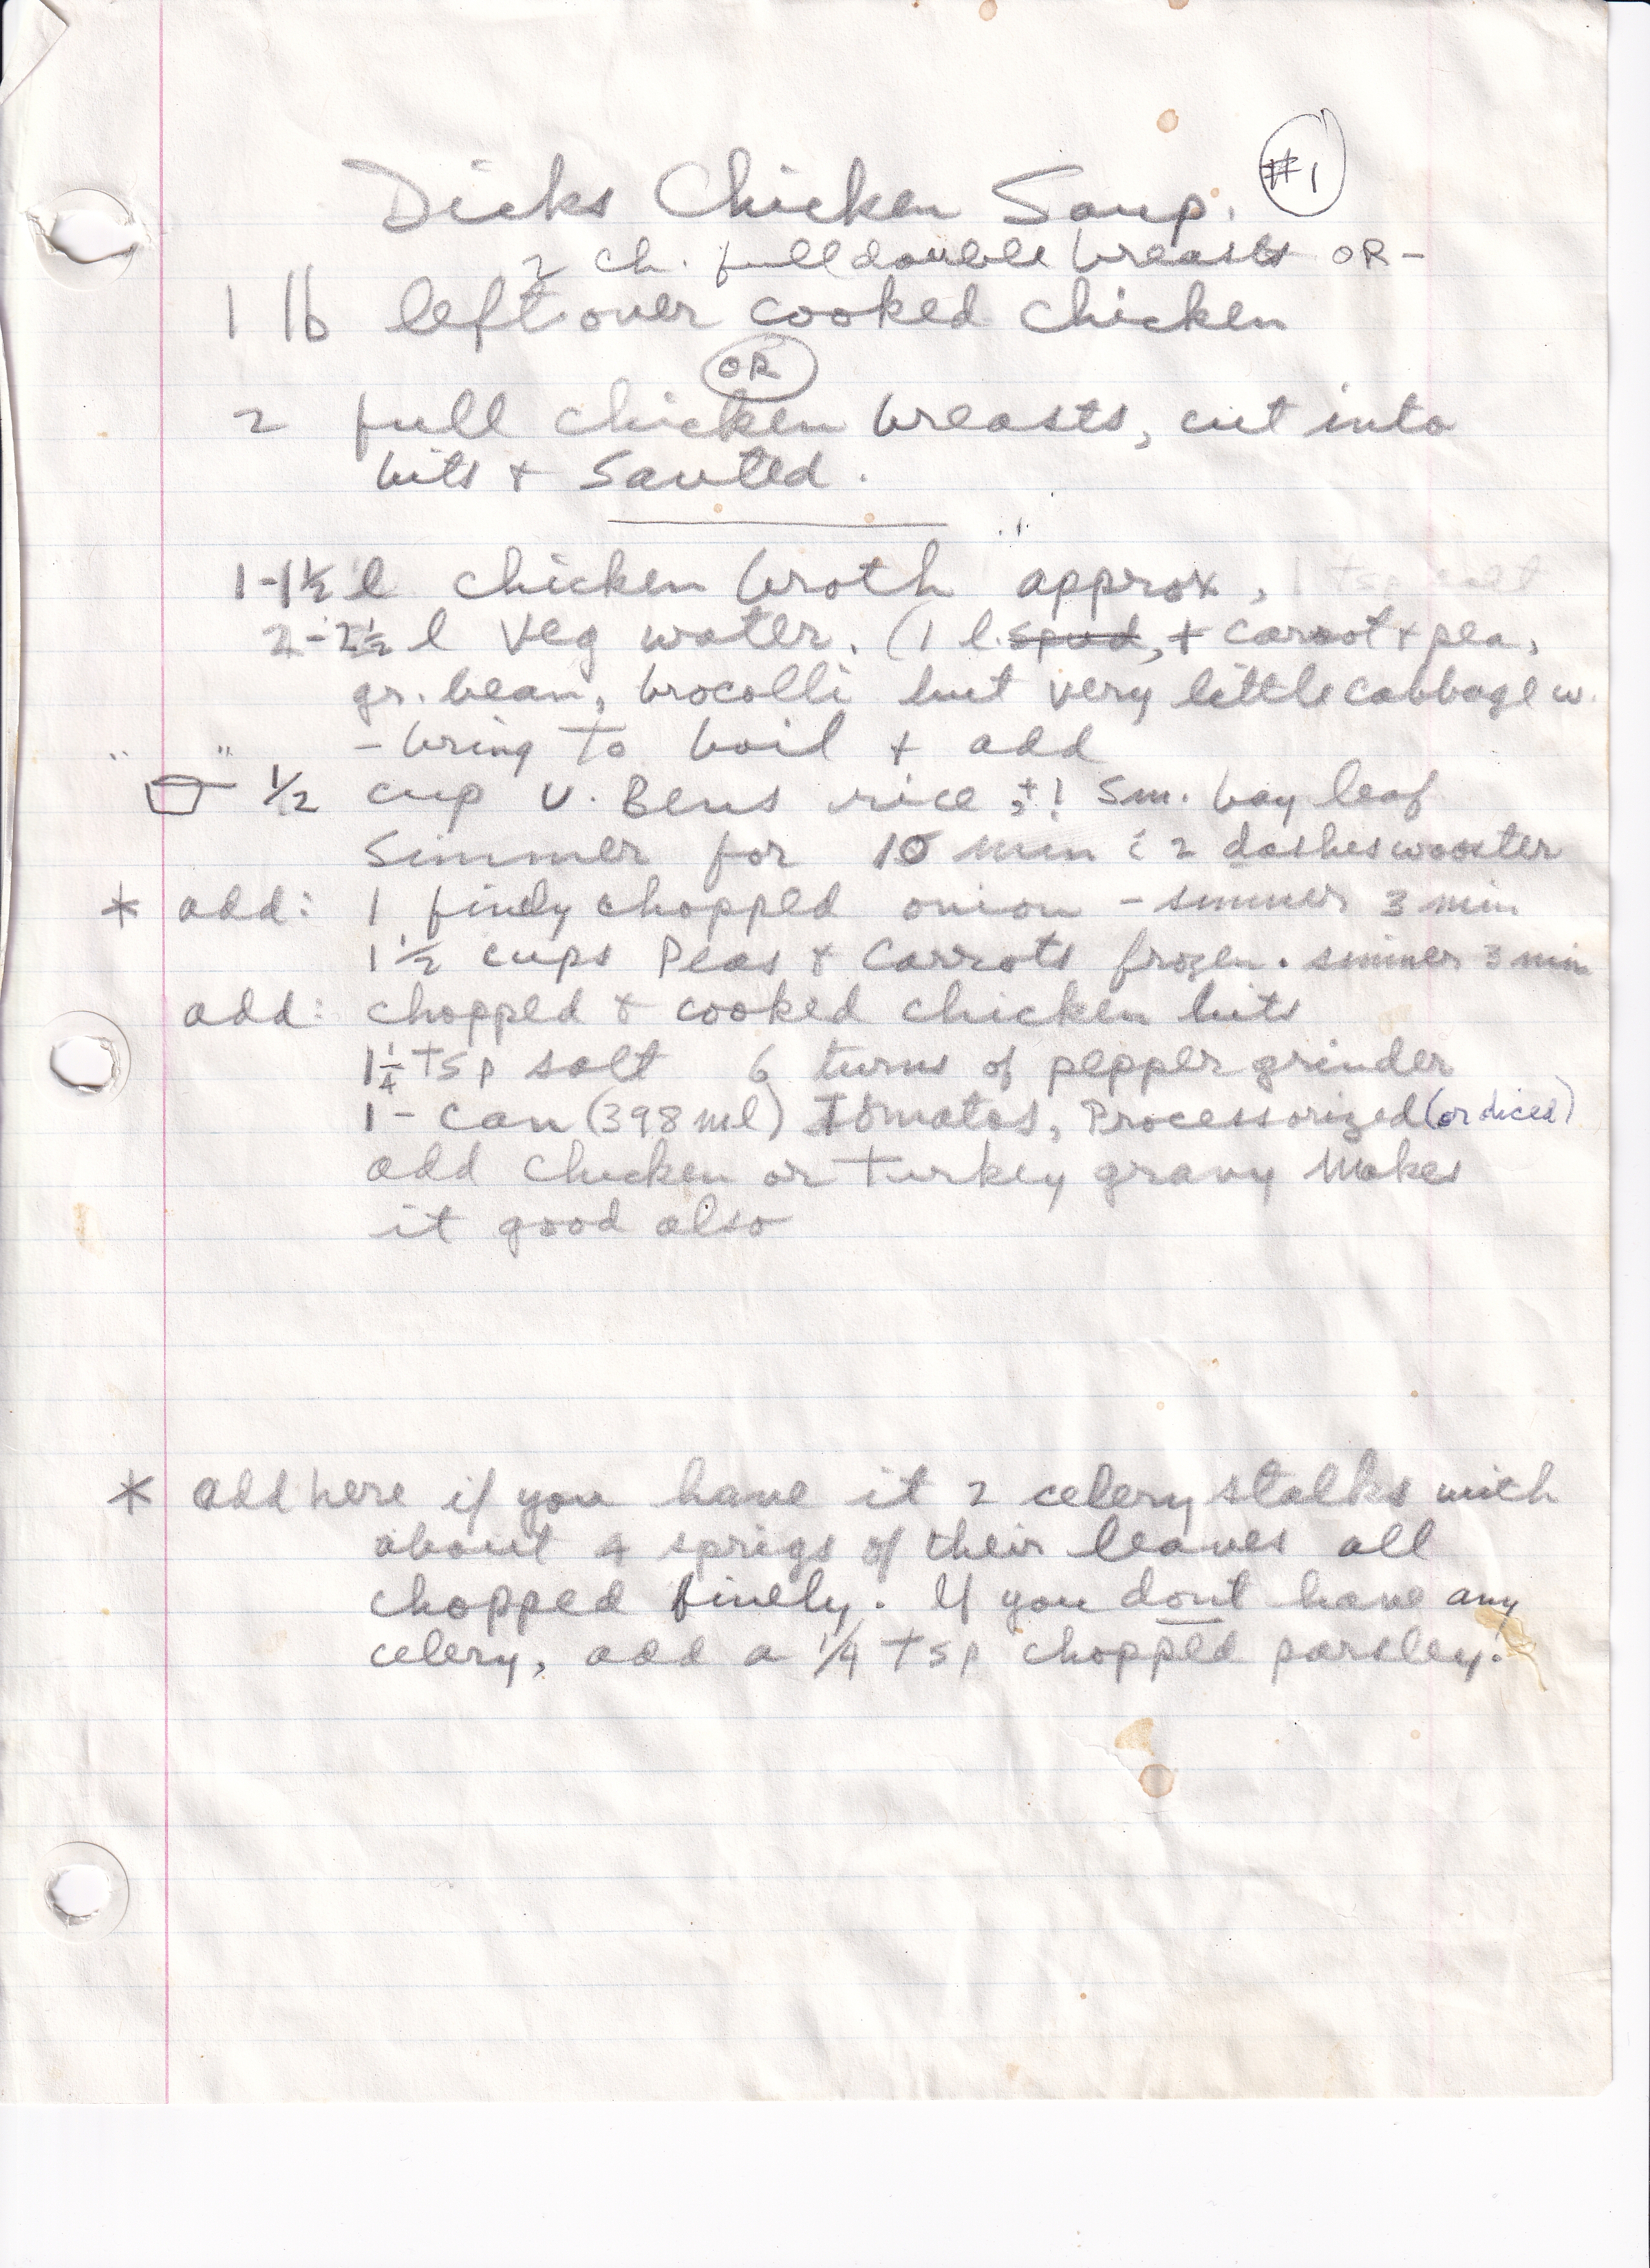 Dicks Chicken Soup. #1
2 ch. full double breasts OR -
1 lb leftover cooked chicken
OR
2 full chicken breasts, cut into
bits + Sauted.
1-1½ l chicken broth approx, 1 tsp salt
2-2½ l veg water. (1 l. spud, + carrot + pea,
gr. bean, brocolli but very little cabbage w.
- bring to boil + add
½ cup U. Bens rice, + 1 sm. bay leaf
Simmer for 10 min & 2 dashes wooster
* add: 1 finely chopped onion - simmer 3 min
1½ cups Peas & Carrots frozen. simmer 3 min
add: chopped & cooked chicken bits
1¼ tsp salt 6 turns of pepper grinder
1 - can (398 ml) tomatos, Processorized (or diced)
add chicken or turkey gravy makes
it good also
* add here if you have it 2 celery stalks with
about 4 sprigs of their leaves all
chopped finely. If you dont have any
celery, add a ¼ tsp chopped parsley!